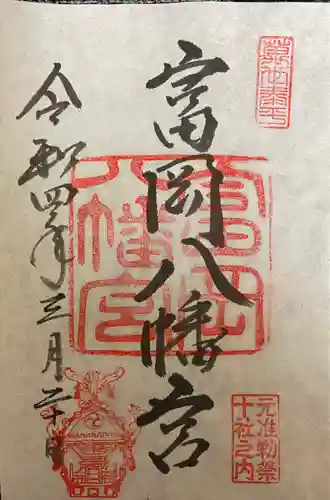 萬世泰平
富岡八幡宮
富岡八幡宮
元准勅祭十社之内
令和四年三月二十日